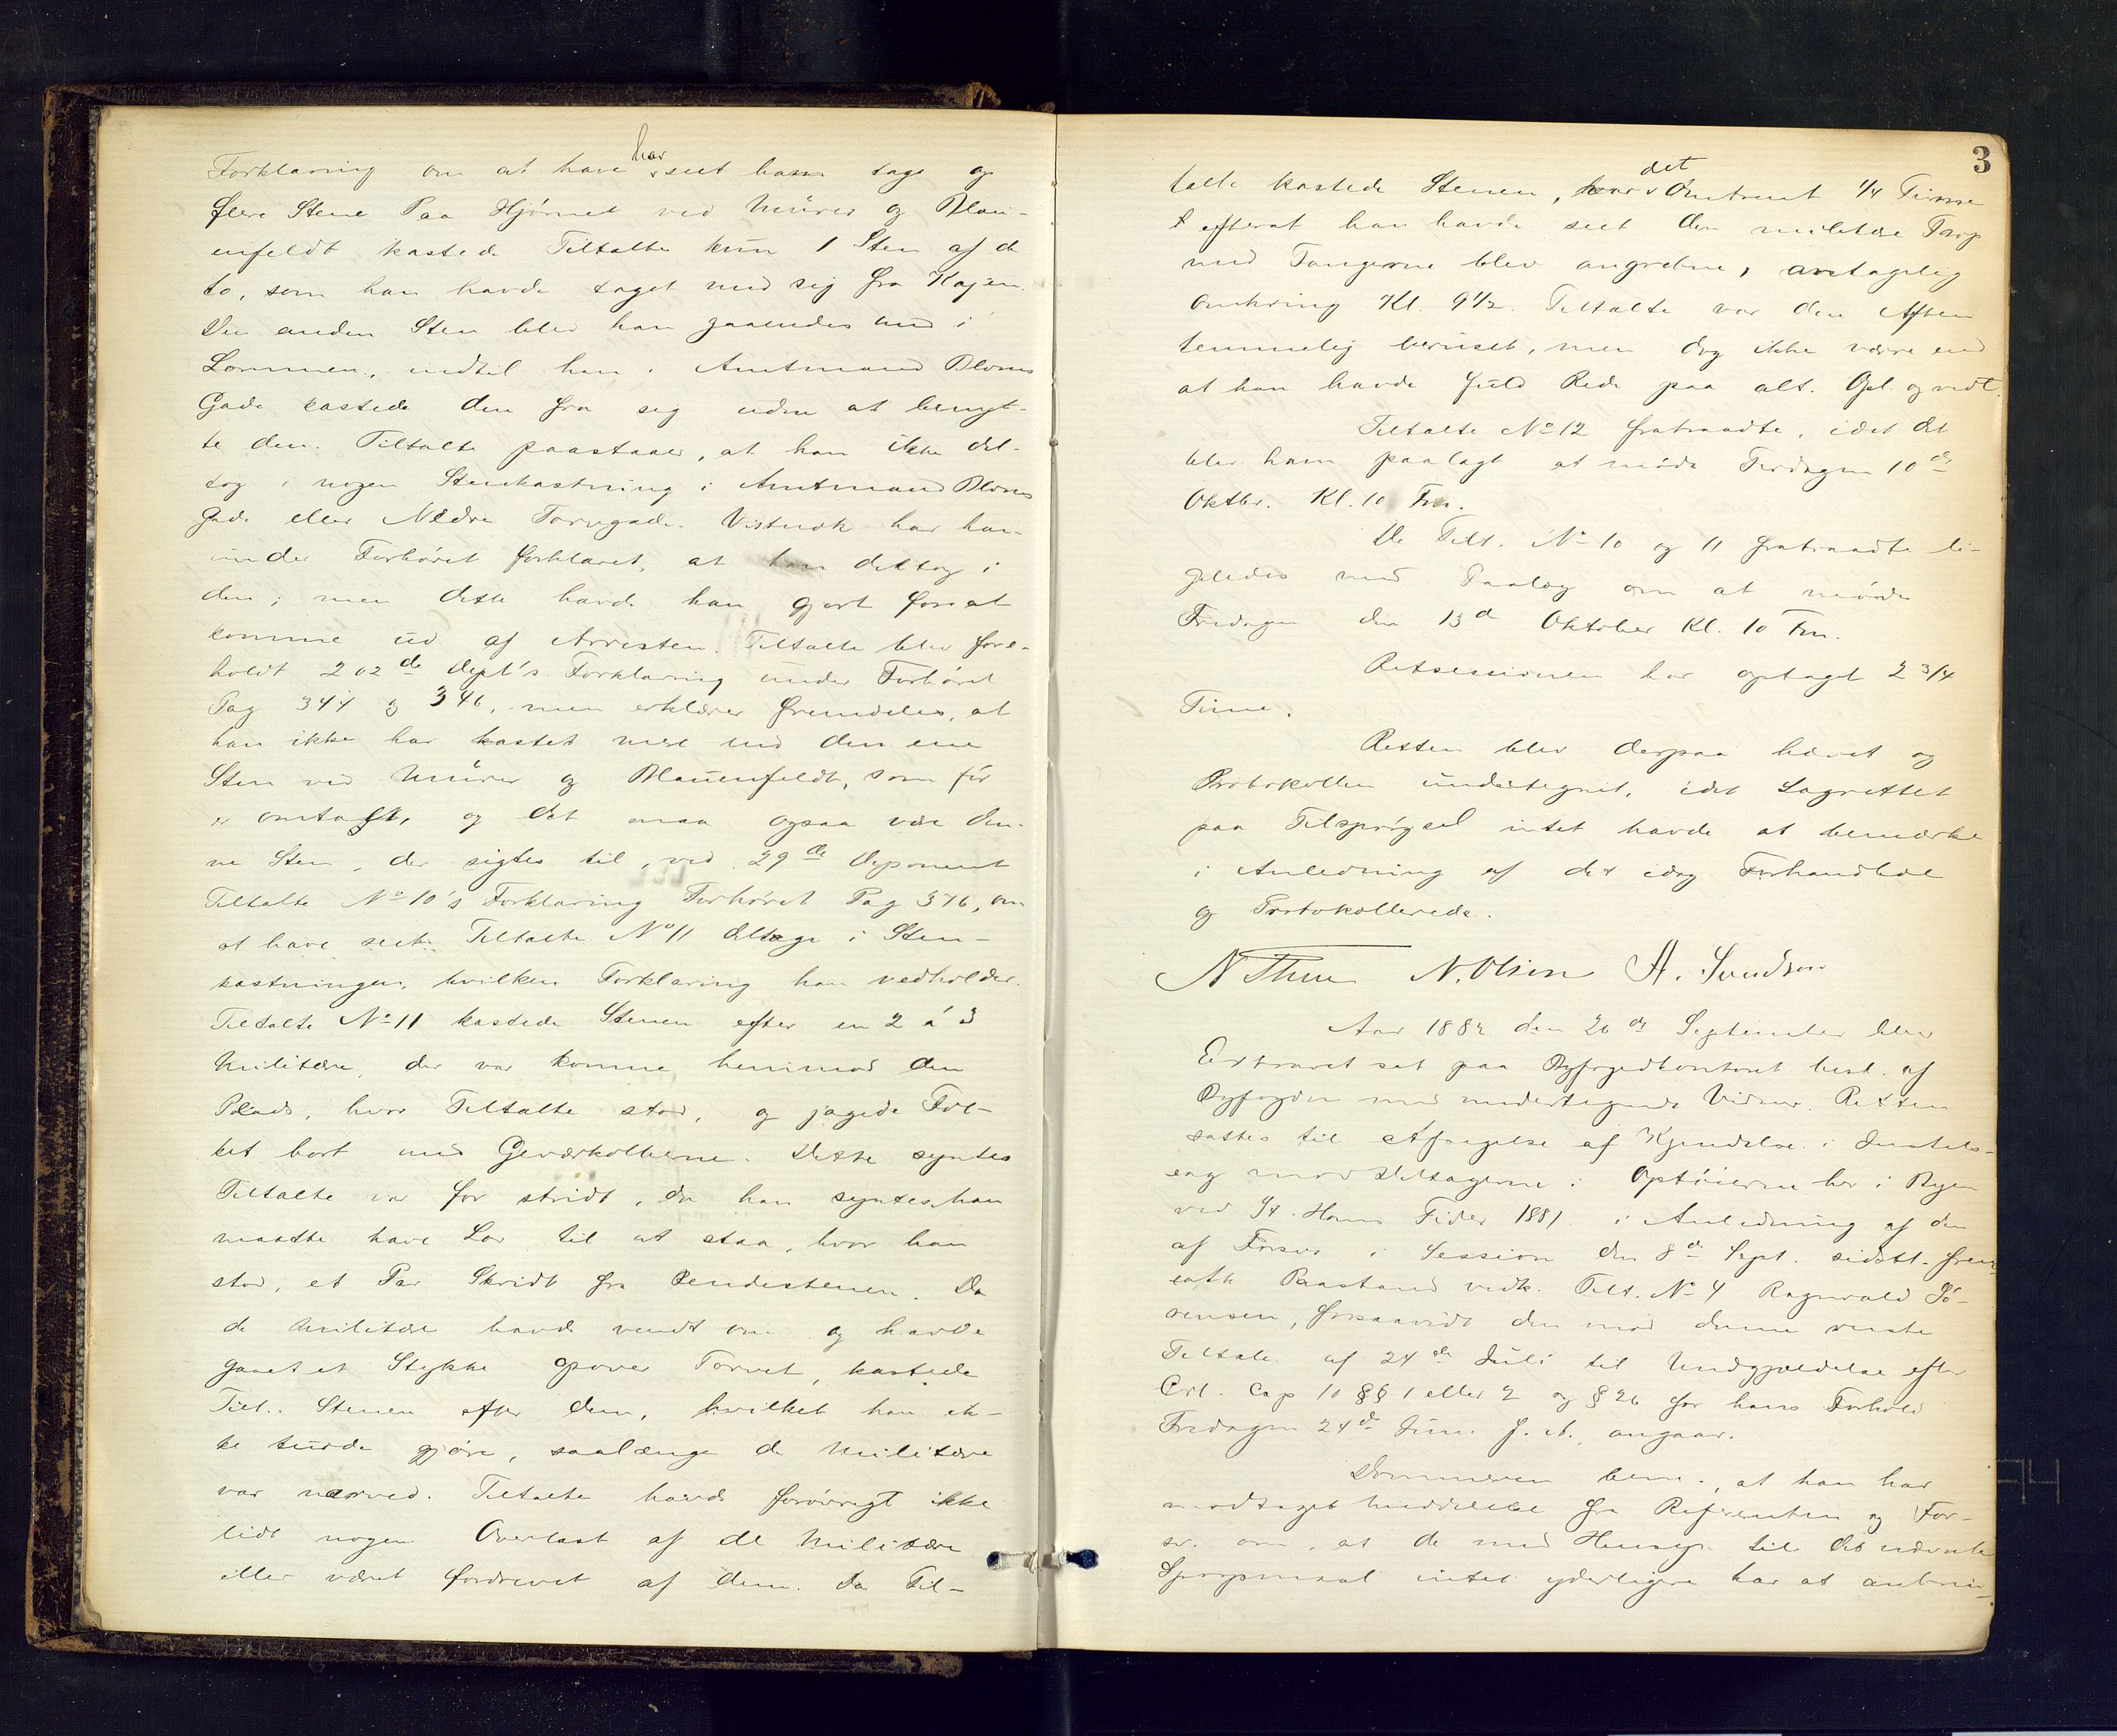 Forklaring om at have har seet ham tage op
flere Stene Paa Hjørnet ved Mürer og Blau-
enfeldt kastede Tiltalte kun 1 Sten af de
to, som han havde taget med sig fra Kajen.
Den anden Sten blev han gaaendes med i
Lommen, indtil han i Amtmand Bloms
Gade kastede den fra sig uden at benyt-
te den. Tiltalte paastaaer, at han ikke del-
tog i nogen Stenkastning i Amtmand Bloms
Gade eller Nedre Torvgade. Vistnok har han
under Forhøret forklaret, at han deltog i
den; men dette havde han gjort for at
komme ud af Arresten. Tiltalte blev fore-
holdt 202de Dept's Forklaring under Forhøret
Pag 344 og 346, men erklærer fremdeles, at
han ikke har kastet mere end den ene
Sten ved Mürer og Blauenfeldt, som før
er omtalt, og det maa ogsaa være den-
ne Sten, der sigtes til, ved 29de Deponent
Tiltalte No 10's Forklaring Forhøret Pag 376, om
at have seet Tiltalte No 11 deltage i Sten-
kastningen, hvilken Forklaring han vedholder.
Tiltalte No 11 kastede Stenen efter en 2 á 3
Militære, der var komne henimod den
Plads, hvor Tiltalte stod, og jagede Fol-
ket bort med Geværkolberne. Dette syntes
Tiltalte var for stridt, da han syntes, han
maatte have Lov til at staa, hvor han
stod, et Par Skridt fra Rendestenen. Da
de Militære havde vendt om og havde
gaaet et Stykke opover Torvet, kastede
Tilt. Stenen efter dem, hvilket han ik-
ke turde gjøre, saalænge de Militære
var nærved. Tiltalte havde forøvrigt ikke
lidt nogen Overlast af de Militære
eller været fordrevet af dem. Da Til-
3
talte kastede Stenen, var det Omtrent 1/4 Time
efterat han havde seet den militære Trop
med Fangerne blev angrebne, antagelig
omkring Kl. 9 1/2. Tiltalte var den Aften
temmelig beruset, men dog ikke værre end
at han havde fuld Rede paa alt. Opl. og vedt.
Tiltalte No 12 fratraadte, idet det
blev ham paalagt at møde Tirsdagen 10de
Oktbr. Kl. 10 Fm.
De Tilt. No 10 og 11 fratraadte li-
geledes med Paalæg om at møde
Fredagen den 13de Oktober Kl. 10 Fm.
Retsessionen har optaget 2 3/4
Time.
Retten blev derpaa hævet og
Protokollen undertegnet, idet Lagrettet
paa Tilspørgsel intet havde at bemærke
i Anledning af det idag Forhandlede
og Protokollerede.
N Thue N. Olsen A. Svendsen
Aar 1882 den 26de September blev
Extraret sat paa Byfogedkontoret best. af
Byfogden med undertegnede Vidner. Retten
sattes til Afsigelse af Kjendelse i Justits-
sag mod Deltagerne i Optøierne her i Byen
ved St. Hans Tider 1881 i Anledning af den
af Forsvr. i Session den 8de Sept. sidstl. frem-
satte Paastand vedk. Tilt. No 4 Ragnvald Sö-
rensen, forsaavidt den mod denne reiste
Tiltale af 24de Juli til Undgjældelse efter
Crl. Cap 10 §§ 1 eller 2 og § 26 for hans Forhold
Fredagen 24de Juni f. A. angaar.
Dommeren bem., at han har
modtaget Meddelelse fra Referenten og For-
sv. om, at de med Hensyn til det nævnte
Spørgsmaal intet yderligere har at anbrin-